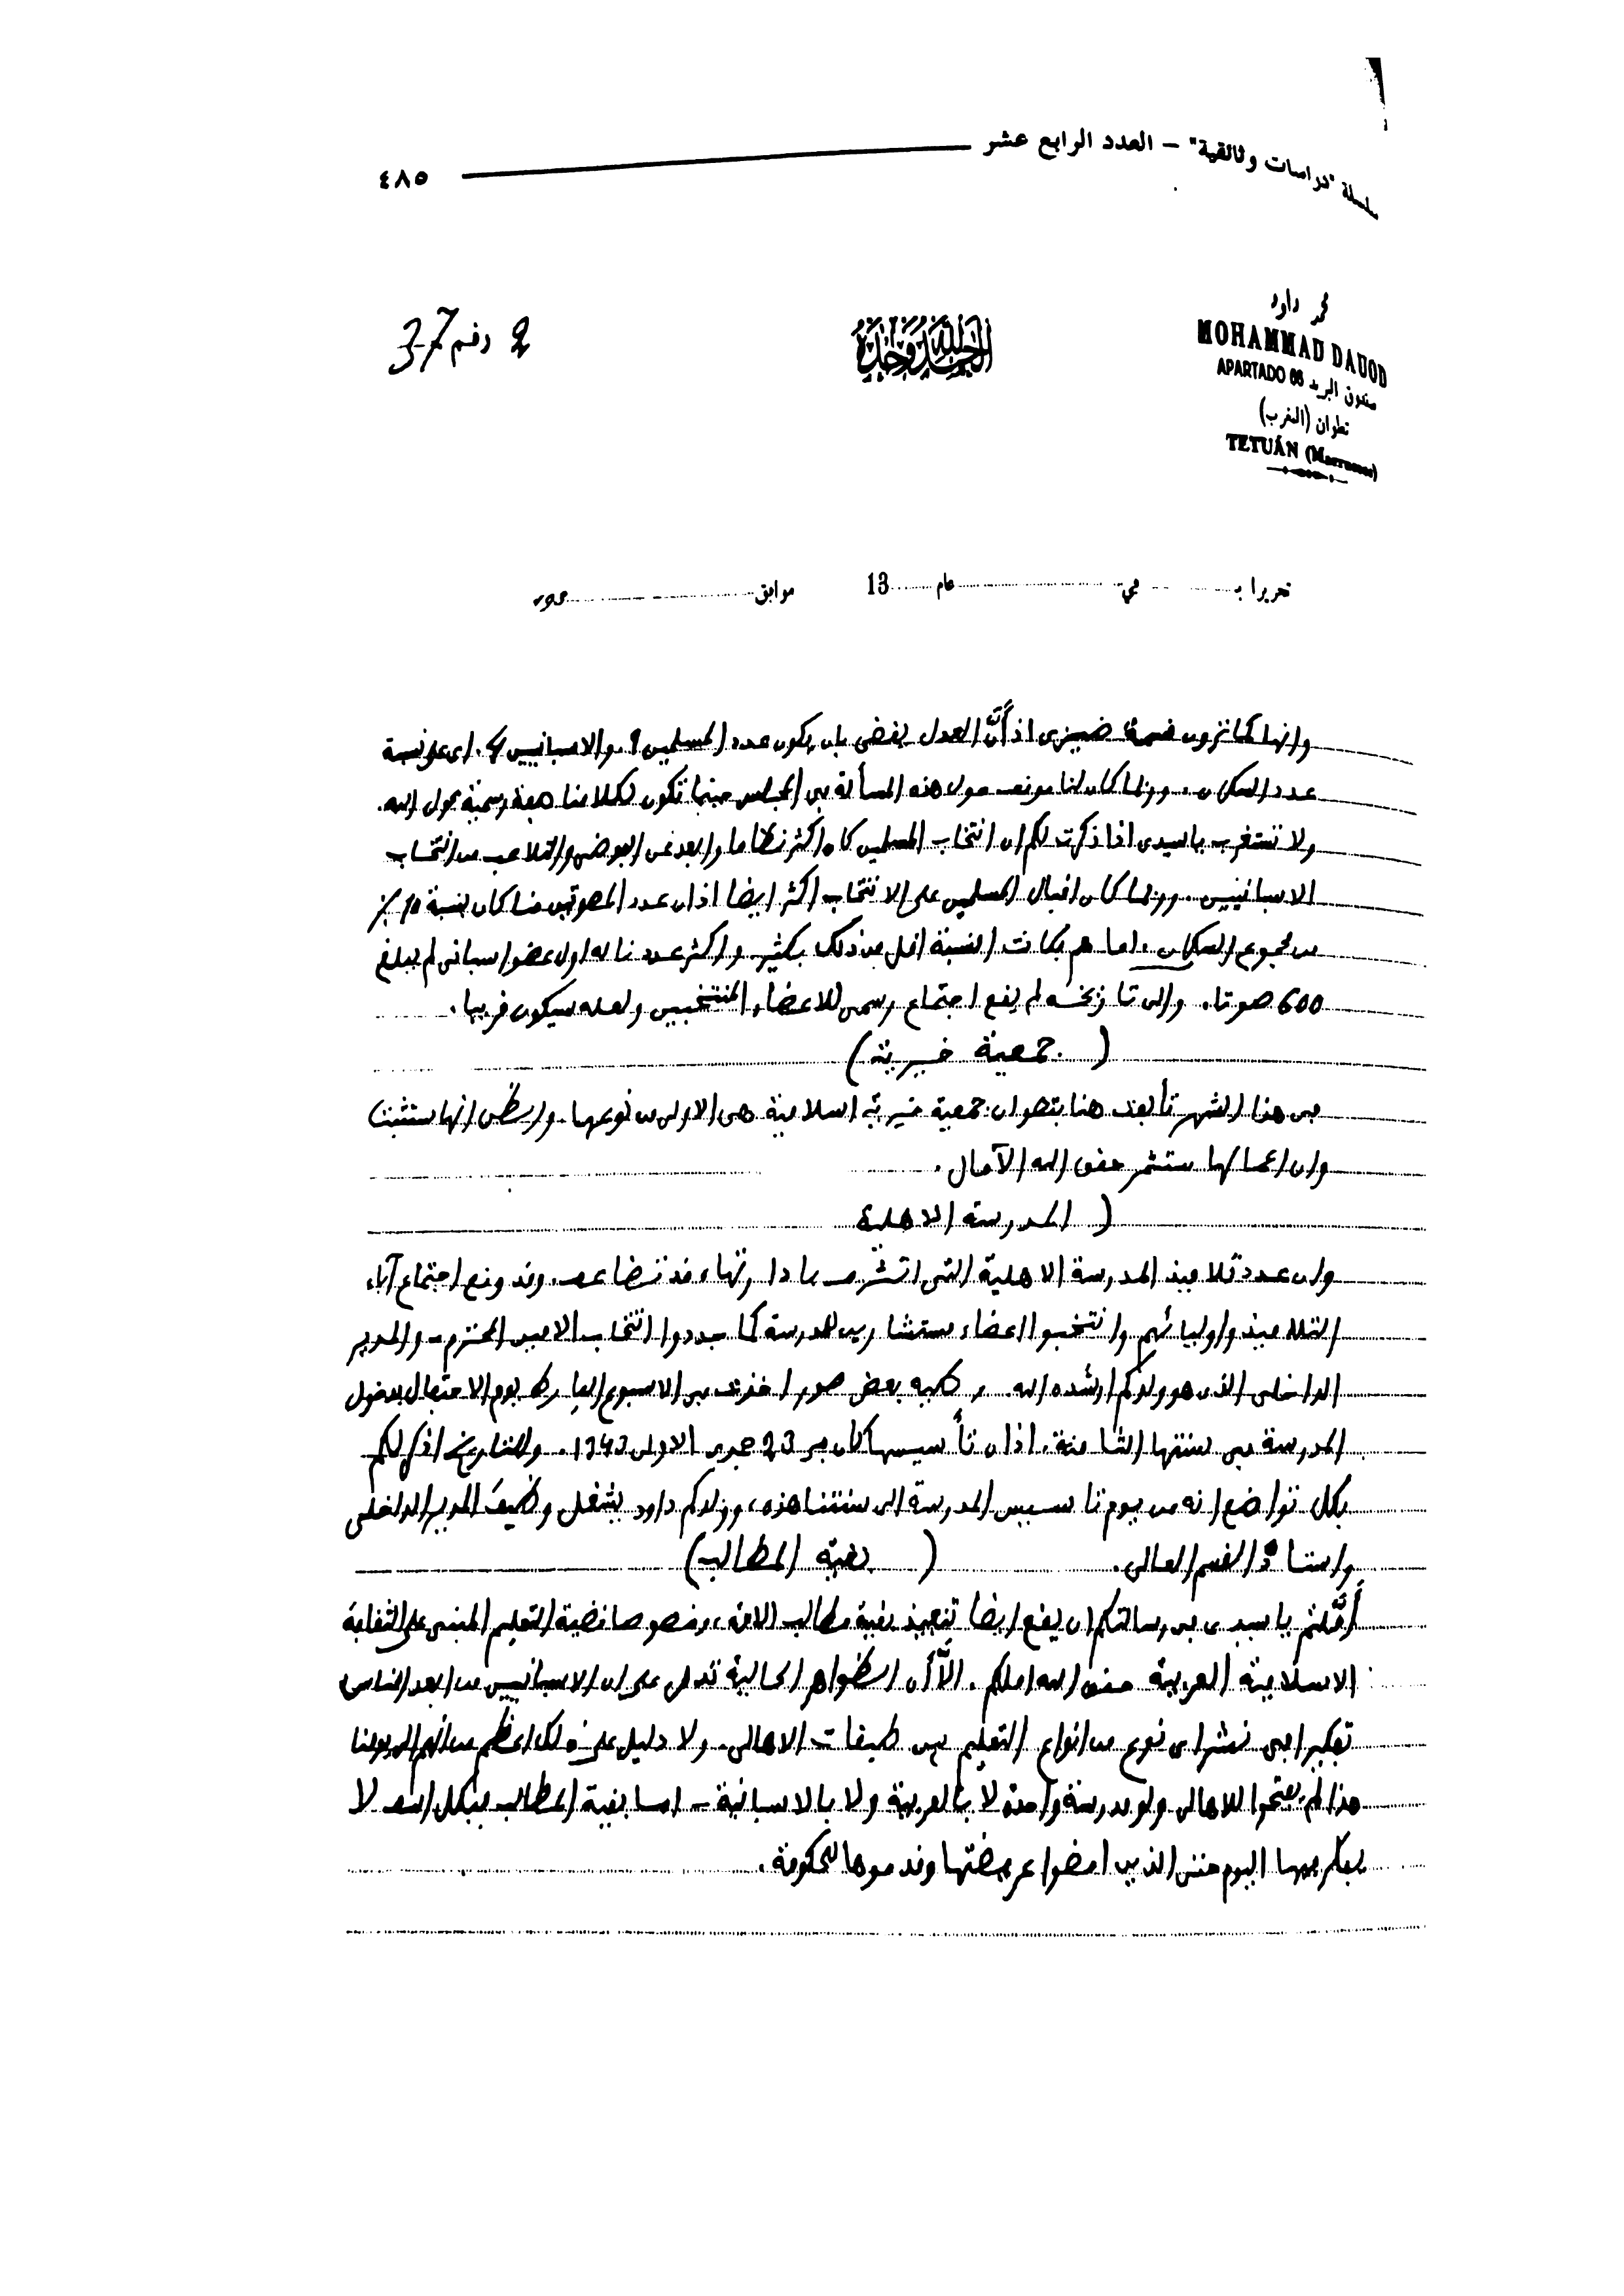 سلسلة "دراسات وثائقية" - العدد الرابع عشر
٤٨٥
محمد داود
MOHAMMAD DAUOD
APARTADO 66 صندوق البريد
تطوان (المغرب)
TETUÁN (Marruecos)
الحمد لله وحده
2 رقم 37
تحريرا بـ في عام 13 موافق
وانها كما ترون قسمة ضيزى اذ أنَّ العدل يقضي بان يكون عدد المسلمين 9. والاسبانيين 4. اي على نسبة
عدد السكان. وربما كان لنا موقف حول هذه المسألة في المجلس حينما تكون لكلامنا صبغة رسمية بحول الله.
ولا تستغرب يا سيدي اذا ذكرت لكم ان انتخاب المسلمين كان اكثر نظاما وابعد عن الفوضى والتلاعب من انتخاب
الاسبانيين. وربما كان اقبال المسلمين على الانتخاب اكثر ايضا اذ ان عدد المصوتين منا كان بنسبة 10 %
من مجموع السكان. اما هم فكانت النسبة اقل من ذلك بكثير واكثر عدد ناله اول عضو اسباني لم يبلغ
600 صوتا. والى تاريخه لم يقع اجتماع رسمي للاعضاء المنتخبين ولعله سيكون قريبا.
( جمعية خيرية )
في هذا الشهر تألفت هنا بتطوان جمعية خيرية اسلامية هي الاولى من نوعها. واظن انها ستثبت
وان اعمالها ستثمر حقق الله الآمال.
( المدرسة الاهلية
وان عدد تلاميذ المدرسة الاهلية التي اتشرف بادارتها، قد تضاعف. وقد وقع اجتماع آباء
التلاميذ واوليائهم وانتخبوا اعضاء مستشارين للمدرسة كما جددوا انتخاب الامين المحترم - والمدير
الداخلي الذي هو ولدكم ارشده الله. وطيه بعض صور اخذت في الاسبوع الفارط يوم الاحتفال بدخول
المدرسة في سنتها الثامنة. اذ ان تأسيسها كان في 23 جمدى الاولى 1343. وللتاريخ اذكر لكم
بكل تواضع انه من يوم تاسيس المدرسة الى سنتنا هذه، وولدكم داود يشغل وظيف المدير الداخلي
واستاذ القسم العالي. ( بقية المطالب )
أمَّلتم يا سيدي في رسالتكم ان يقع ايضا تنفيذ بقية مطالب الامة، وخصوصا قضية التعليم المبني على الثقافة
الاسلامية العربية حقق الله املكم. الاَّ أن الظواهر الحالية تدل على ان الاسبانيين من ابعد الناس
تفكيرا في نشر اي نوع من انواع التعليم بين طبقات الاهالي. ولا دليل على ذلك اعظم من انهم الى يومنا
هذا لم يفتحوا للاهالي ولو مدرسة واحدة لا بالعربية ولا بالاسبانية - اما بقية المطالب فبكل اسف لا
يفكر فيها اليوم حتى الذين امضوا عريضتها وقدموها للحكومة.